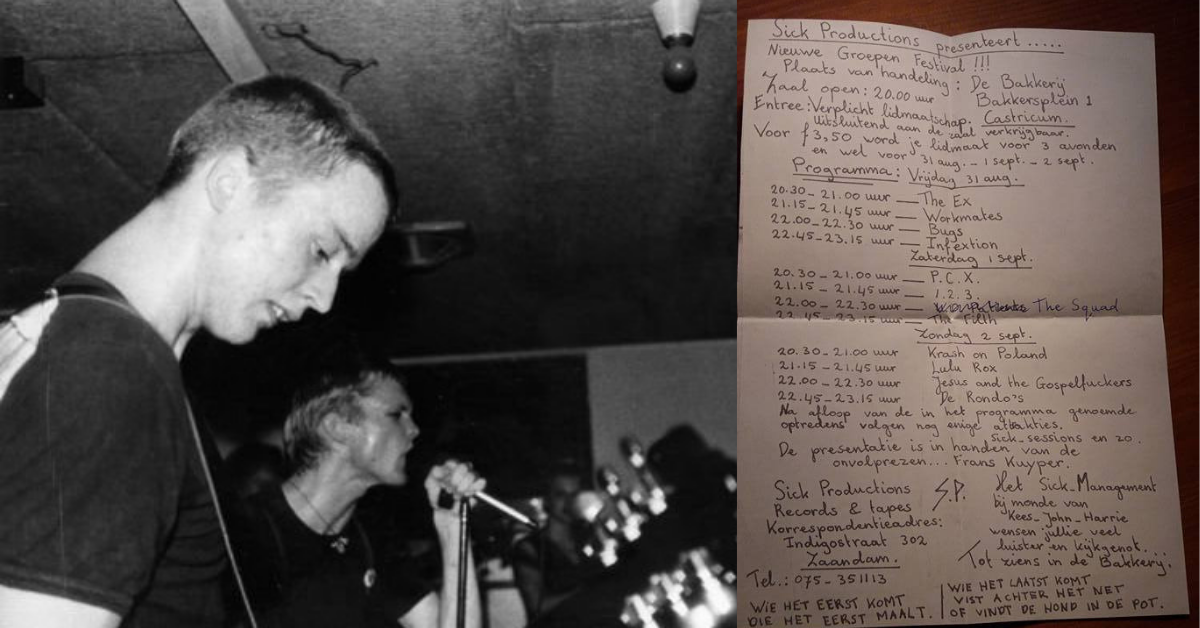 Sick Productions presenteert .....
Nieuwe Groepen Festival !!!
Plaats van handeling : De Bakkerij
Zaal open : 20.00 uur Bakkersplein 1
Entree : Verplicht lidmaatschap. Castricum.
Uitsluitend aan de zaal verkrijgbaar.
Voor f 3,50 word je lidmaat voor 3 avonden
en wel voor 31 aug. - 1 sept. - 2 sept.
Programma : Vrijdag 31 aug.
20.30 - 21.00 uur — The Ex
21.15 - 21.45 uur — Workmates
22.00 - 22.30 uur — Bugs
22.45 - 23.15 uur — Infextion
Zaterdag 1 sept.
20.30 - 21.00 uur — P.C.X.
21.15 - 21.45 uur — 1.2.3.
22.00 - 22.30 uur — The Squad
22.45 - 23.15 uur — The Filth
Zondag 2 sept.
20.30 - 21.00 uur Krash on Poland
21.15 - 21.45 uur Lulu Rox
22.00 - 22.30 uur Jesus and the Gospelfuckers
22.45 - 23.15 uur De Rondo's
Na afloop van de in het programma genoemde
optredens volgen nog enige attrakties.
sick-sessions en zo.
De presentatie is in handen van de
onvolprezen... Frans Kuyper.
Sick Productions
Records & tapes
Korrespondentieadres:
Indigostraat 302
Zaandam.
Tel.: 075 - 351113
S.P.
Het Sick-Management
bij monde van
Kees-John-Harrie
wensen jullie veel
luister en kijkgenot...
Tot ziens in de Bakkerij.
WIE HET EERST KOMT
DIE HET EERST MAALT.
WIE HET LAATST KOMT
VIST ACHTER HET NET
OF VINDT DE HOND IN DE POT.